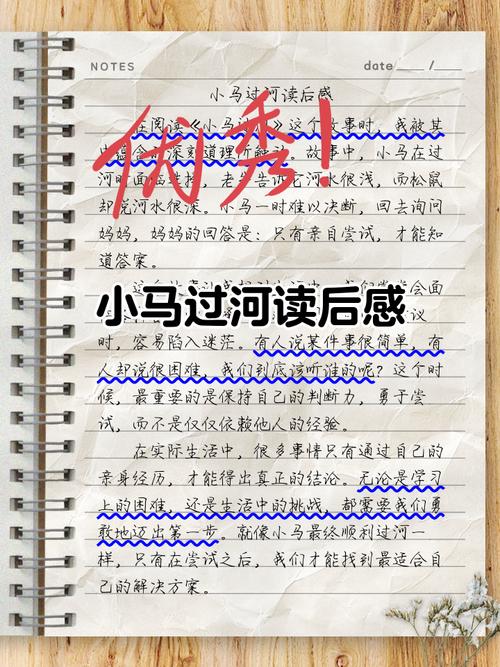 NOTES
date ___ / ___
小马过河读后感
优秀!
在阅读《小马过》这个故事时,我被其
故事中,小马在过
河时面临选择,老牛告诉它河水很浅,而松鼠
却说河水很深。小马一时难以决断,回去询问
妈妈,妈妈的回答是:只有亲自尝试,才能知
道答案。
会面
小马过河读后感
议
时,容易陷入迷茫。有人说某件事很简单,有
人却说很困难,我们到底该听谁的呢?这个时
候,最重要的是保持自己的判断力,勇于尝
试,而不是仅仅依赖他人的经验。
在实际生活中,很多事情只有通过自己的
亲身经历,才能得出真正的结论。无论是学习
上的困难,还是生活中的挑战,都需要我们勇
敢地迈出第一步。就像小马最终顺利过河一
样,只有在尝试之后,我们才能找到最适合自
己的解决方案。